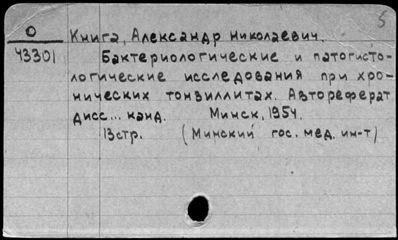 5
О Книга, Александр Николаевич.
43301 Бактериологические и патогисто-
логические исследования при хро-
нических тонзиллитах. Автореферат
дисс... канд. Минск, 1954.
13стр. (Минский гос. мед. ин-т)